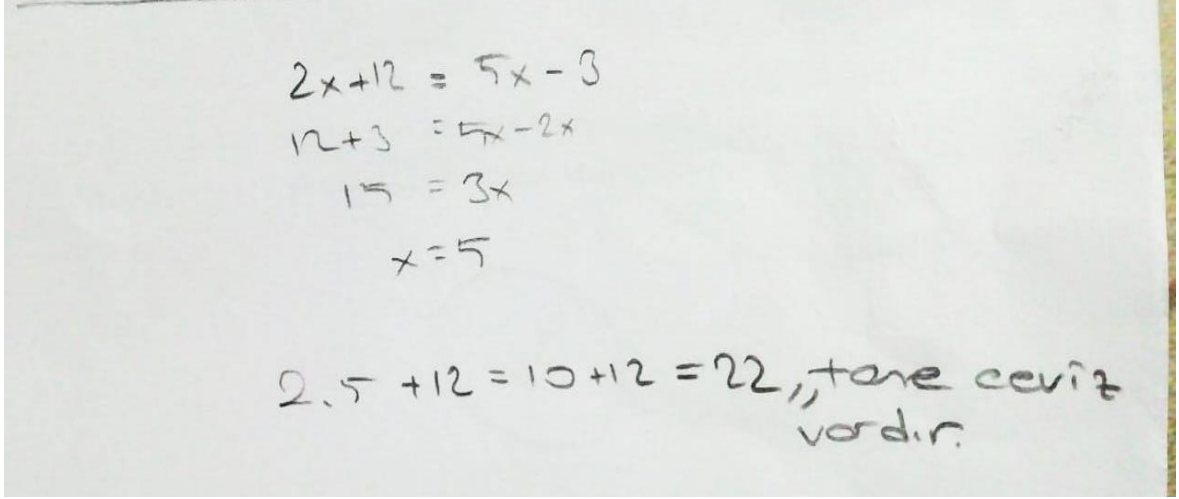 2x+12 = 5x-3
12+3 = 5x-2x
15 = 3x
x=5
2.5 +12 = 10+12 = 22,, tane ceviz
vardır.